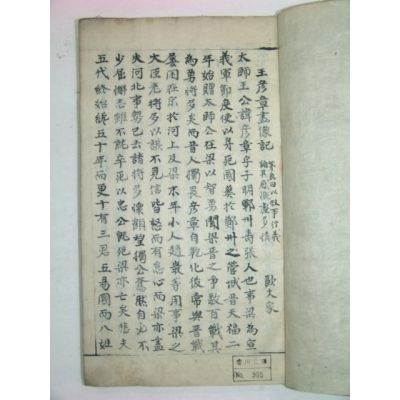 王彦章畫像記
茅鹿門曰以敘事行議
論其感慨處多情
歐大家
太師王公諱彦章字子明鄆州壽張人也事梁為宣
義軍節度使以身死國葬於鄭州之管城晉天福二
年始贈太師公在梁以智勇聞梁晉之爭數百戰其
為勇將多矣而晉人獨畏彦章自乾化後常與晉戰
屢困莊宗於河上及梁末年小人趙巖等用事梁之
大臣老將多以讒不見信皆怒而有怠心而梁亦盡
失河北事勢已去諸將多懷顧望獨公奮然自必不
少屈懈志雖不就卒死以忠公既死梁亦亡矣悲夫
五代終始纔五十年而更十有三君五易國而八姓
No. 305